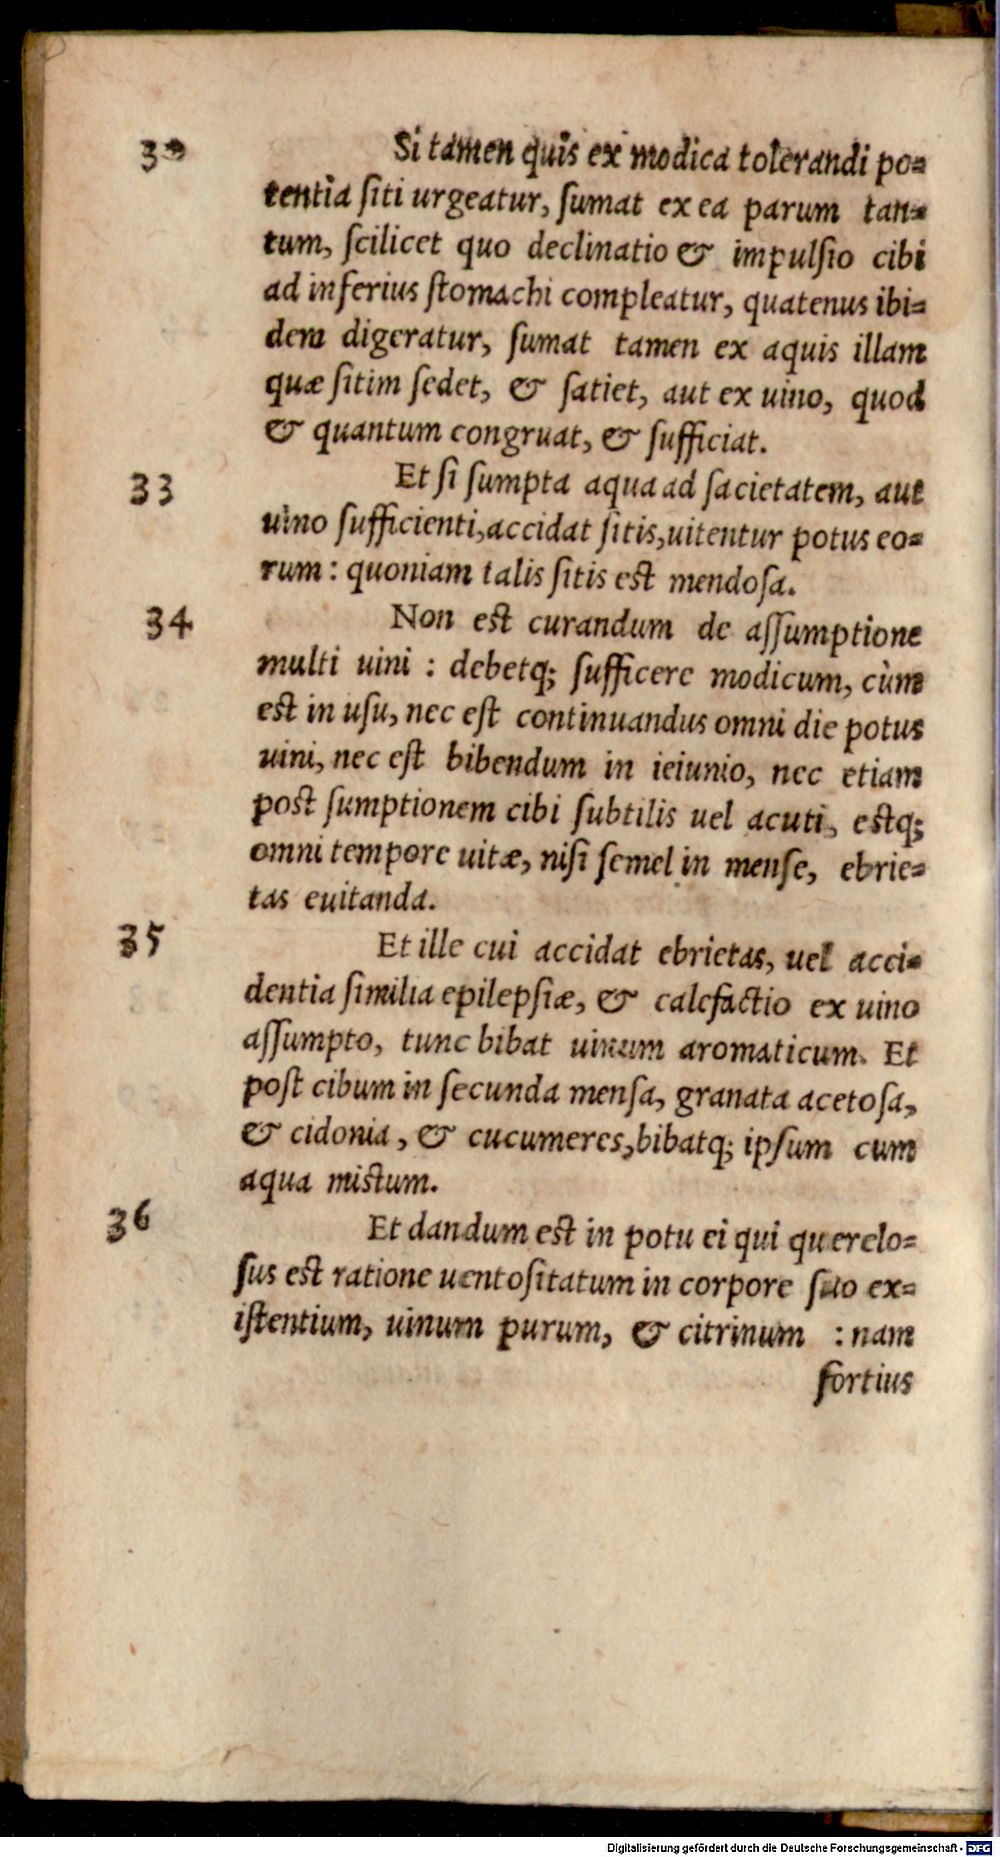 Si tamen quis ex modica tolerandi po=
tentia ſiti urgeatur, ſumat ex ea parum tan=
tum, ſcilicet quo declinatio & impulſio cibi
ad inferius ſtomachi compleatur, quatenus ibi=
dem digeratur, ſumat tamen ex aquis illam
quæ ſitim ſedet, & ſatiet, aut ex uino, quod
& quantum congruat, & ſufficiat.
33 Et ſi ſumpta aqua ad ſacietatem, aut
uino ſufficienti, accidat ſitis, uitentur potus eo=
rum: quoniam talis ſitis eſt mendoſa.
34 Non eſt curandum de aſſumptione
multi uini : debetq; ſufficere modicum, cùm
eſt in uſu, nec eſt continuandus omni die potus
uini, nec eſt bibendum in ieiunio, nec etiam
poſt ſumptionem cibi ſubtilis uel acuti, eſtq;
omni tempore uitæ, niſi ſemel in menſe, ebrie=
tas euitanda.
35 Et ille cui accidat ebrietas, uel acci=
dentia ſimilia epilepſiæ, & calefactio ex uino
aſſumpto, tunc bibat uinum aromaticum. Et
poſt cibum in ſecunda menſa, granata acetoſa,
& cidonia, & cucumeres, bibatq; ipſum cum
aqua miſtum.
36 Et dandum eſt in potu ei qui querelo=
ſus eſt ratione uentoſitatum in corpore ſuo ex=
iſtentium, uinum purum, & citrinum : nam
fortius
Digitalisierung gefördert durch die Deutsche Forschungsgemeinschaft - DFG